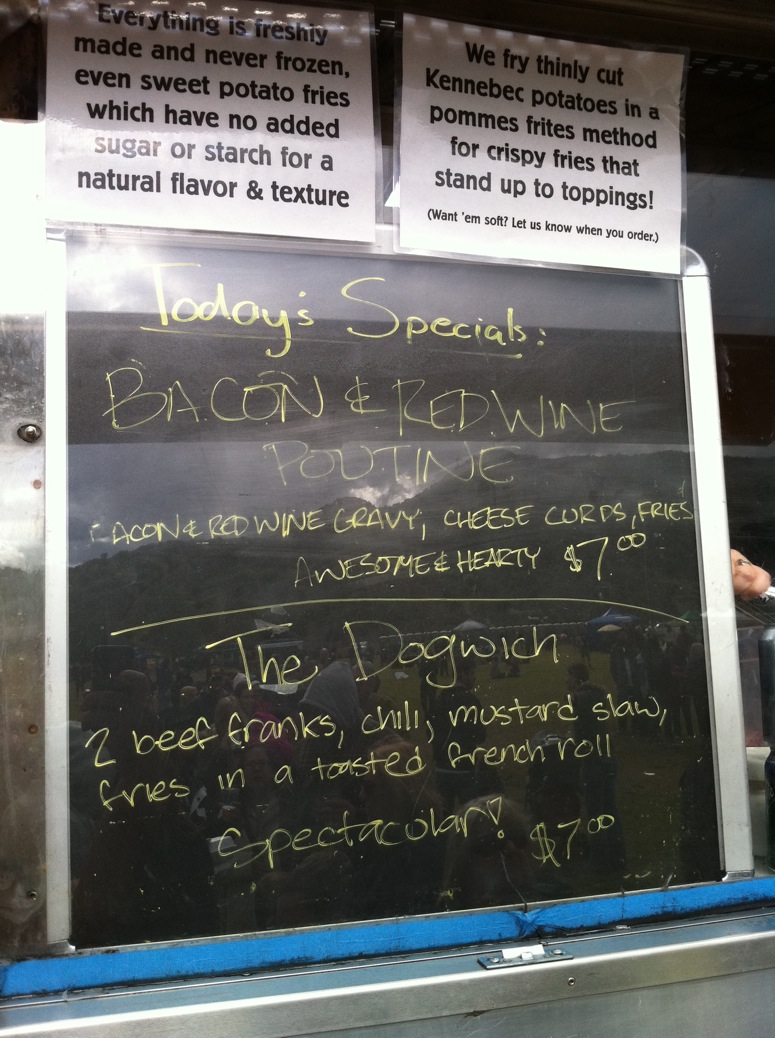 Everything is freshly
made and never frozen,
even sweet potato fries
which have no added
sugar or starch for a
natural flavor & texture
We fry thinly cut
Kennebec potatoes in a
pommes frites method
for crispy fries that
stand up to toppings!
(Want 'em soft? Let us know when you order.)
Today's Specials:
BACON & RED WINE
POUTINE
BACON & RED WINE GRAVY, CHEESE CURDS, FRIES
AWESOME & HEARTY $7.00
The Dogwich
2 beef franks, chili, mustard slaw,
fries in a toasted french roll
Spectacular! $7.00